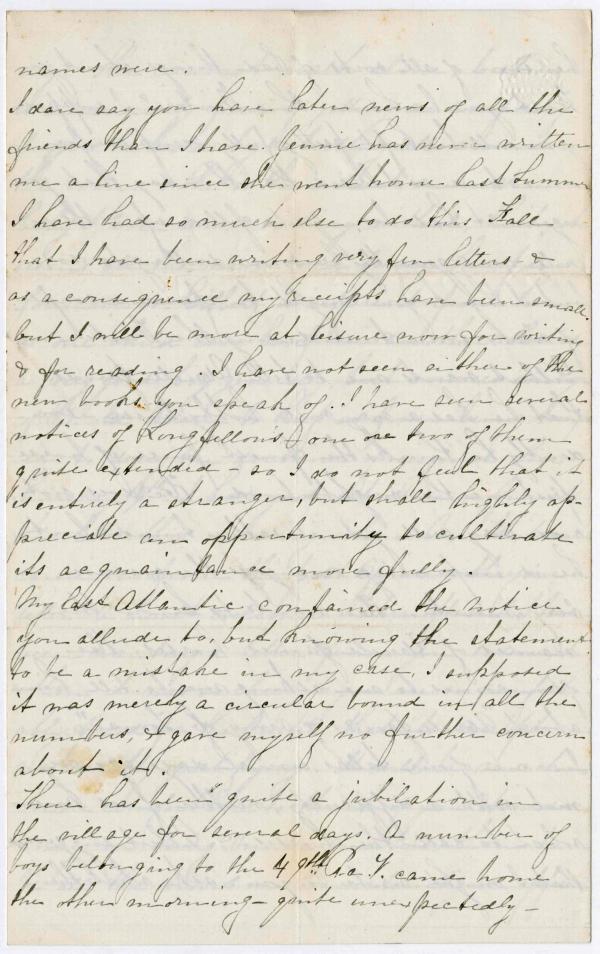 names were.
I dare say you have later news of all the
friends than I have. Jennie has never written
me a line since she went home last Summer
I have had so much else to do this Fall
that I have been writing very few letters &
as a consequence my receipts have been small.
but I will be more at leisure now for writing
& for reading. I have not seen either of the
new books you speak of. I have seen several
notices of Longfellow's, one or two of them
quite extended - so I do not feel that it
is entirely a stranger, but shall highly ap-
preciate an opportunity to cultivate
its acquaintance more fully.
My last Atlantic contained the notice
you allude to, but knowing the statement
to be a mistake in my case, I supposed
it was merely a circular bound in all the
numbers, & gave myself no further concern
about it.
There has been quite a jubilation in
the village for several days. A number of
boys belonging to the 49th Pa. V. came home
the other morning - quite unexpectedly -